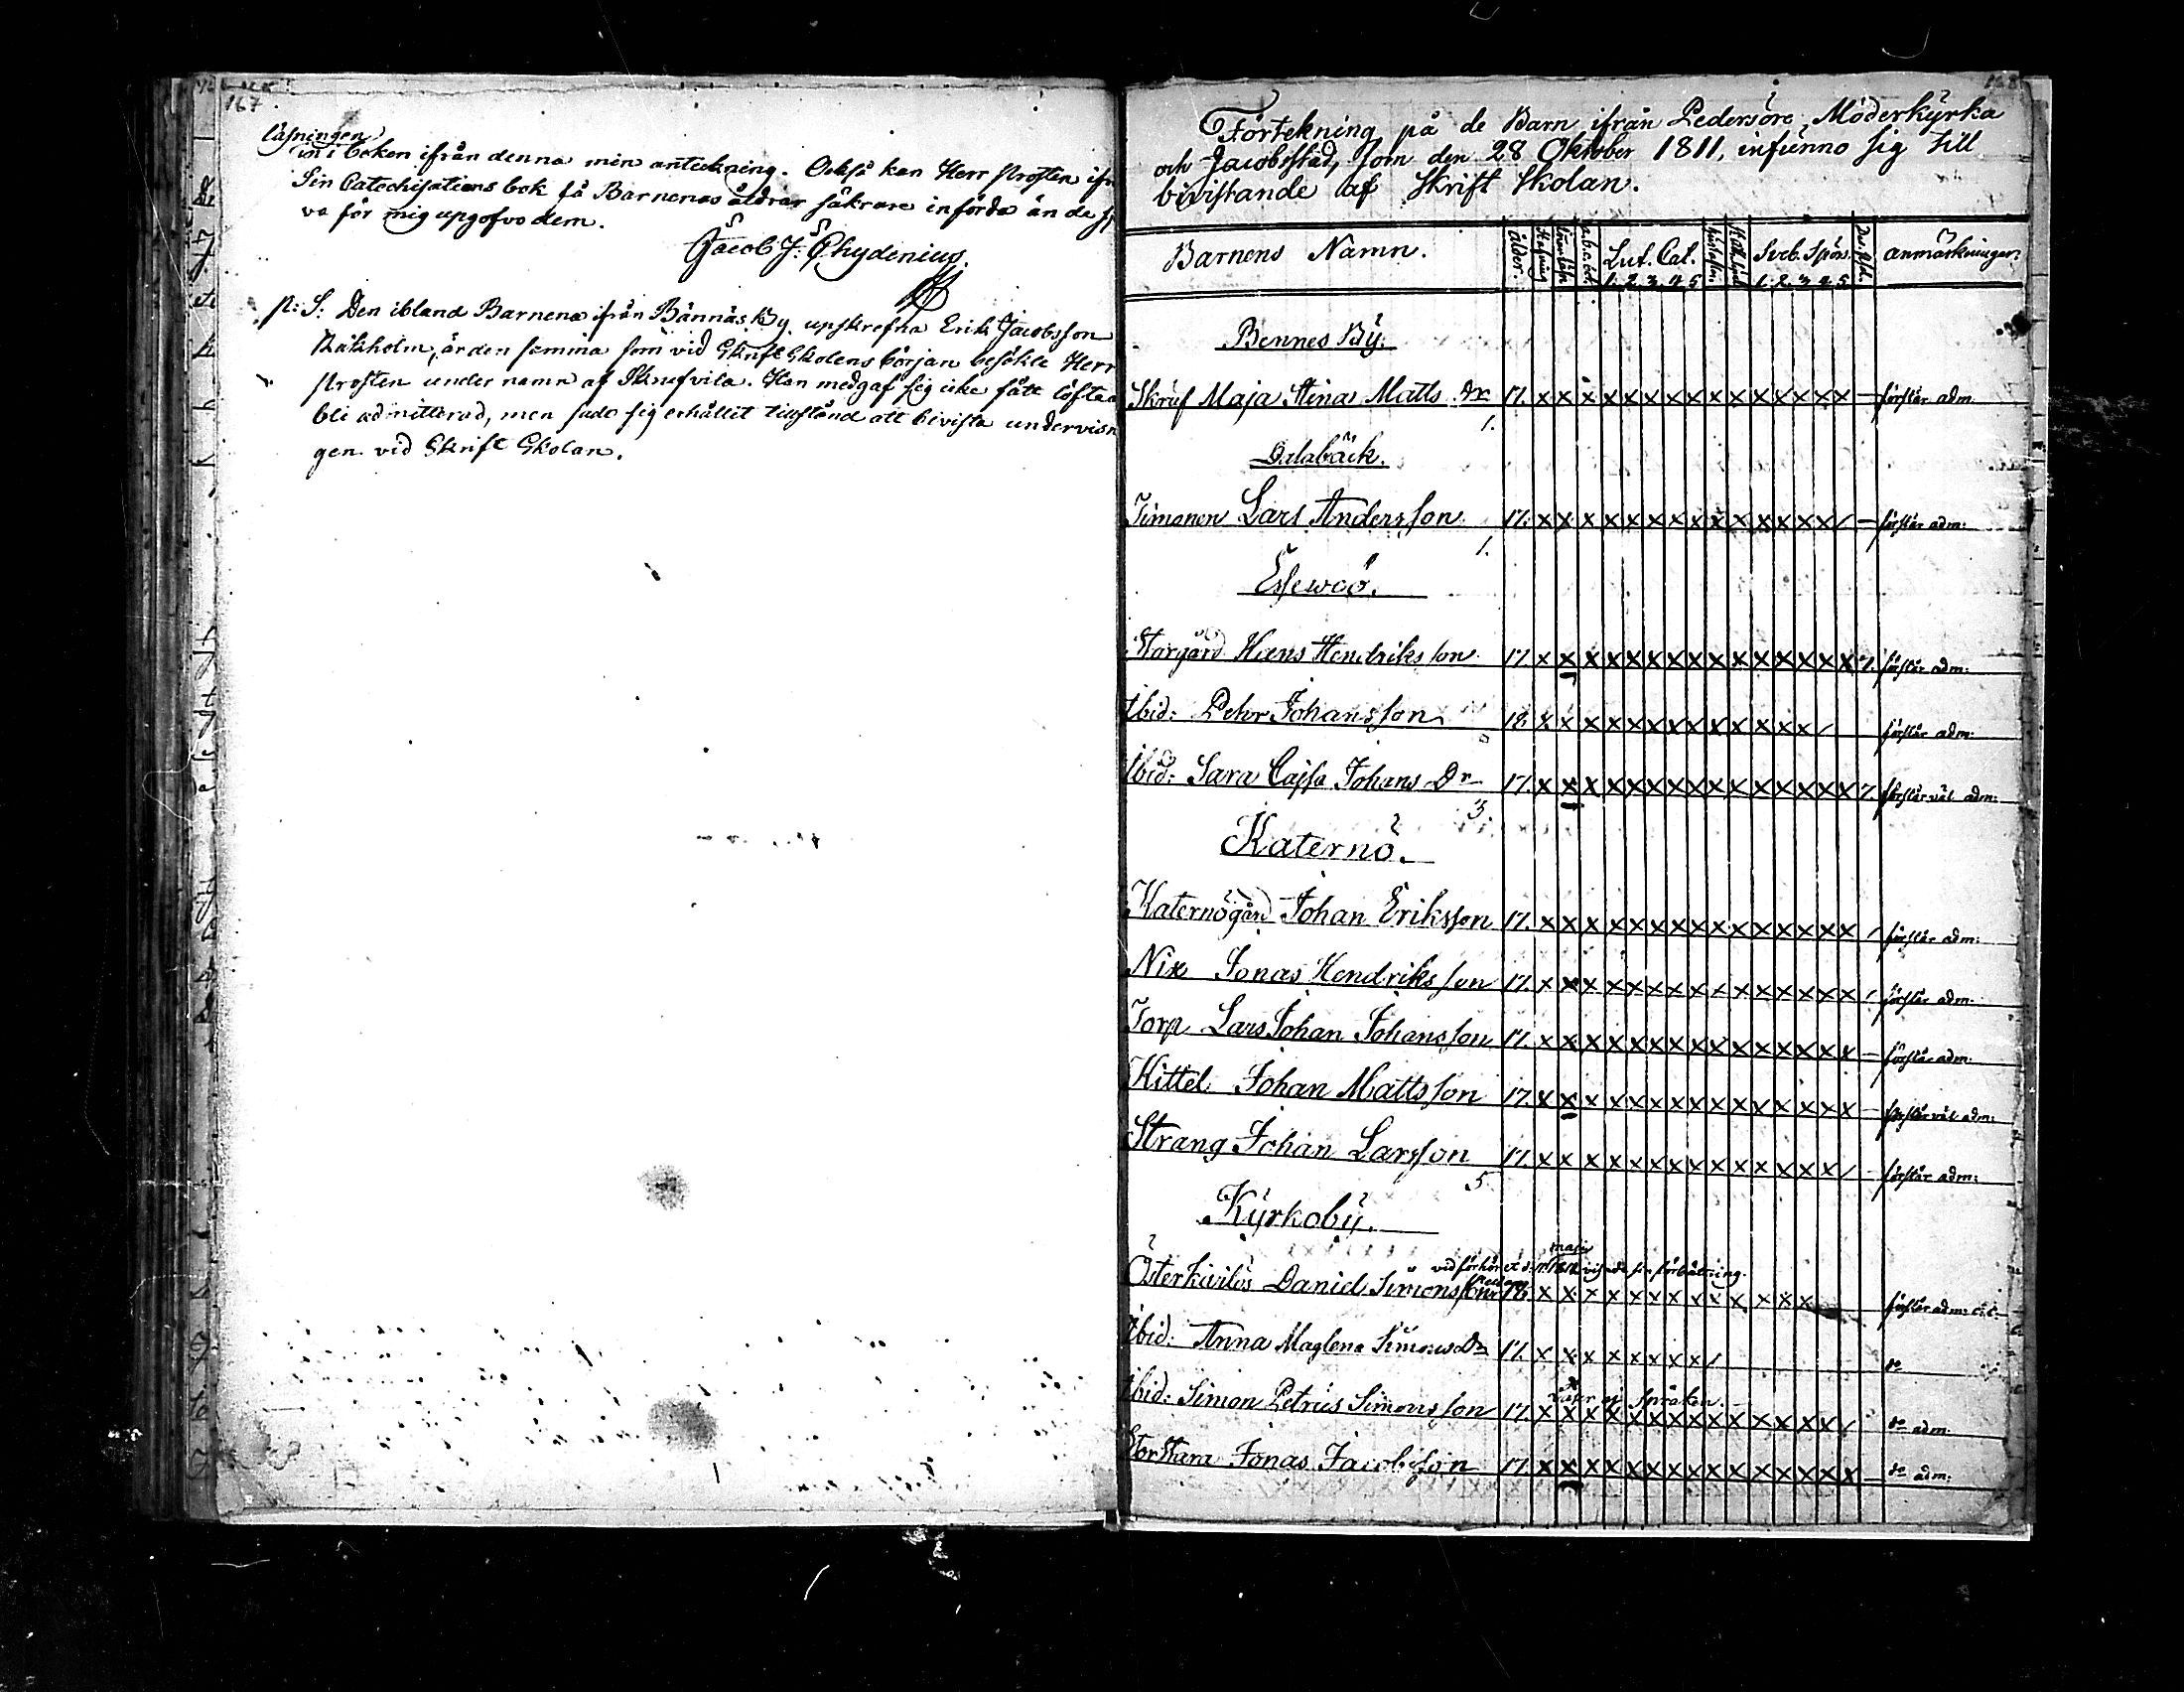 167
läsningen
in i boken ifrån denna min anteckning. Också kan Herr Prosten ifr
Sin Catechisations bok få Barnenas åldrar säkrare införda än de sj
va för mig upgofvo dem.
Jacob J: Chydenius.
P: S: Den ibland Barnena ifrån Bännäs By upskrefna Erik Jacobsson
Kåtholm, är den samma som vid Skrift Skolens början besökte Herr
Prosten under namn af Skrufvila. Han medgaf sig icke fått löfte a
bli admitterad, men sade sig erhållit tillstånd att bivista undervisn
gen vid Skrift Skolan.
168
Förtekning på de Barn ifrån Pedersöre Moderkyrka
och Jacobsstad, som den 28 Oktober 1811, infunno sig till
bivistande af Skrift Skolan.
Barnens Namn. ålder. a.b.c. bok Lut. Cat. 1. 2. 3. 4. 5 hustaflan Sveb. Spörs. 1. 2. 3. 4. 5. anmärkningar.
Bennes By.
Skruf Maja Stina Matts Dr 17. x x x x x x x x x x x x x x x — förstår adm.
1.
Dalabäck.
Simonen Lars Andersson 17. x x x x x x x x x x x x x x / — förstår adm:
1.
Essewoö.
Storgård Hans Hendriksson 17. x x x x x x x x x x x x x x x 7. förstår adm:
Ibid: Pehr Johansson 18. x x x x x x x x x x x x x / förstår adm:
Ibid: Sara Cajsa Johans Dr 17. x x x x x x x x x x x x x x x 7. förstår väl adm:
3.
Katernö.
Katernögård Johan Eriksson 17. x x x x x x x x x x x x x x x / förstår adm:
Nix Jonas Hendriksson 17. x x x x x x x x x x x x x x x / förstår adm.
Torp Lars Johan Johansson 17. x x x x x x x x x x x x x x x — förstår adm.
Kittel Johan Mattsson 17. x x x x x x x x x x x x x x x — förstår väl adm:
Strang Johan Larsson 17. x x x x x x x x x x x x x x / — förstår adm:
5
Kyrkoby.
maji
vid förhöret d. 1812 viste sin förbättring.
Österkivilös Daniel Simonsson 18. x x x x x x x x x x x x x förstår adm: c. c.
Ibid: Anna Maglena Simons Dr 17. x x x x x x x x / do
ej språken.
Ibid: Simon Petrus Simonsson 17. x x x x x x x x x x x x x x / do adm.
Storstara Jonas Jacobsson 17. x x x x x x x x x x x x x x x — do adm: